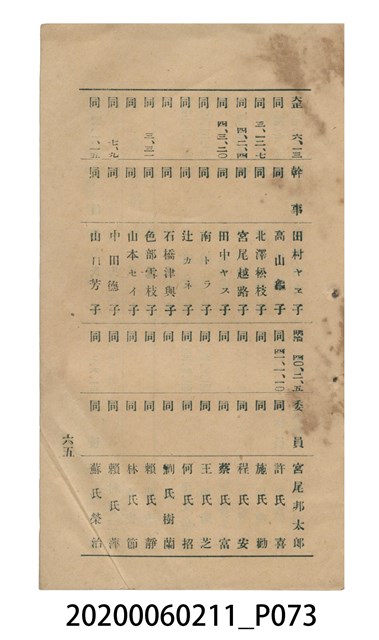 六、一三 幹事 田村ヤヱ子 四〇、二、五 委員 宮尾邦太郎
同 同 高山子 同 四一、一、一〇 同 許氏喜
同 三、一二、七 同 北澤松枝子 同 同 施氏勸
同 四、二、四 同 宮尾越路子 同 同 程氏安
同 四、三、二〇 同 田中ヤス子 同 同 蔡氏富
同 同 南トラ子 同 同 王氏芝
同 同 辻カネ子 同 同 何氏招
同 同 石橋津與子 同 同 劉氏樹蘭
同 三、三一 同 色部雪枝子 同 同 賴氏靜
同 同 山本セイ子 同 同 林氏節
同 七、九 同 中田德子 同 同 賴氏萍
同 一、一五 同 山口芳子 同 同 蘇氏榮治
六五
20200060211_P073